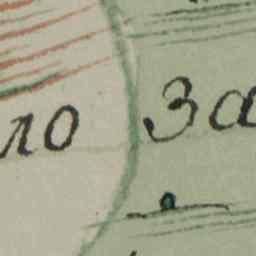 ло За